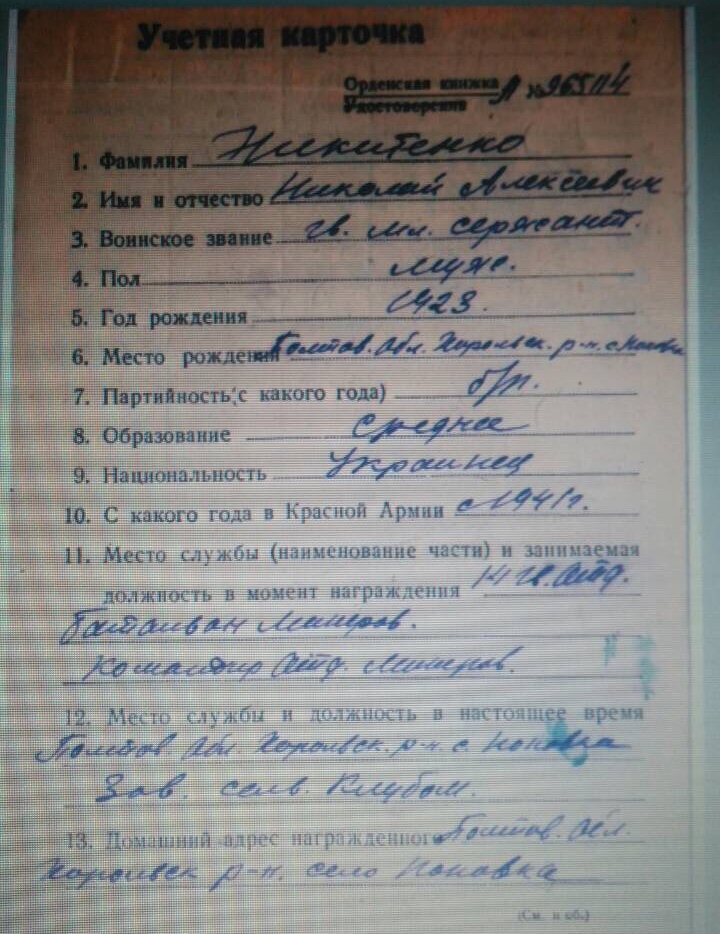 Учетная карточка
Орденская книжка А №965114
Удостоверение
1. Фамилия Никитенко
2. Имя и отчество Николай Алексеевич
3. Воинское звание гв. мл. сержант.
4. Пол муж.
5. Год рождения 1923.
6. Место рождения Полтов. Обл. Хорольск. р-н. с.
7. Партийность(с какого года) б/п.
8. Образование Среднее
9. Национальность Украинец
10. С какого года в Красной Армии с 1941г.
11. Место службы (наименование части) и занимаемая
должность в момент награждения 14 гв. Отд.
Батальон Минеров.
Командир Отд. Минеров.
12. Место службы и должность в настоящее время
Полтов. Обл. Хорольск. р-н. с. Поповка
Зав. сель. Клубом.
13. Домашний адрес награжденного Полтов. Обл.
Хорольск р-н. село Поповка
(См. н об.)